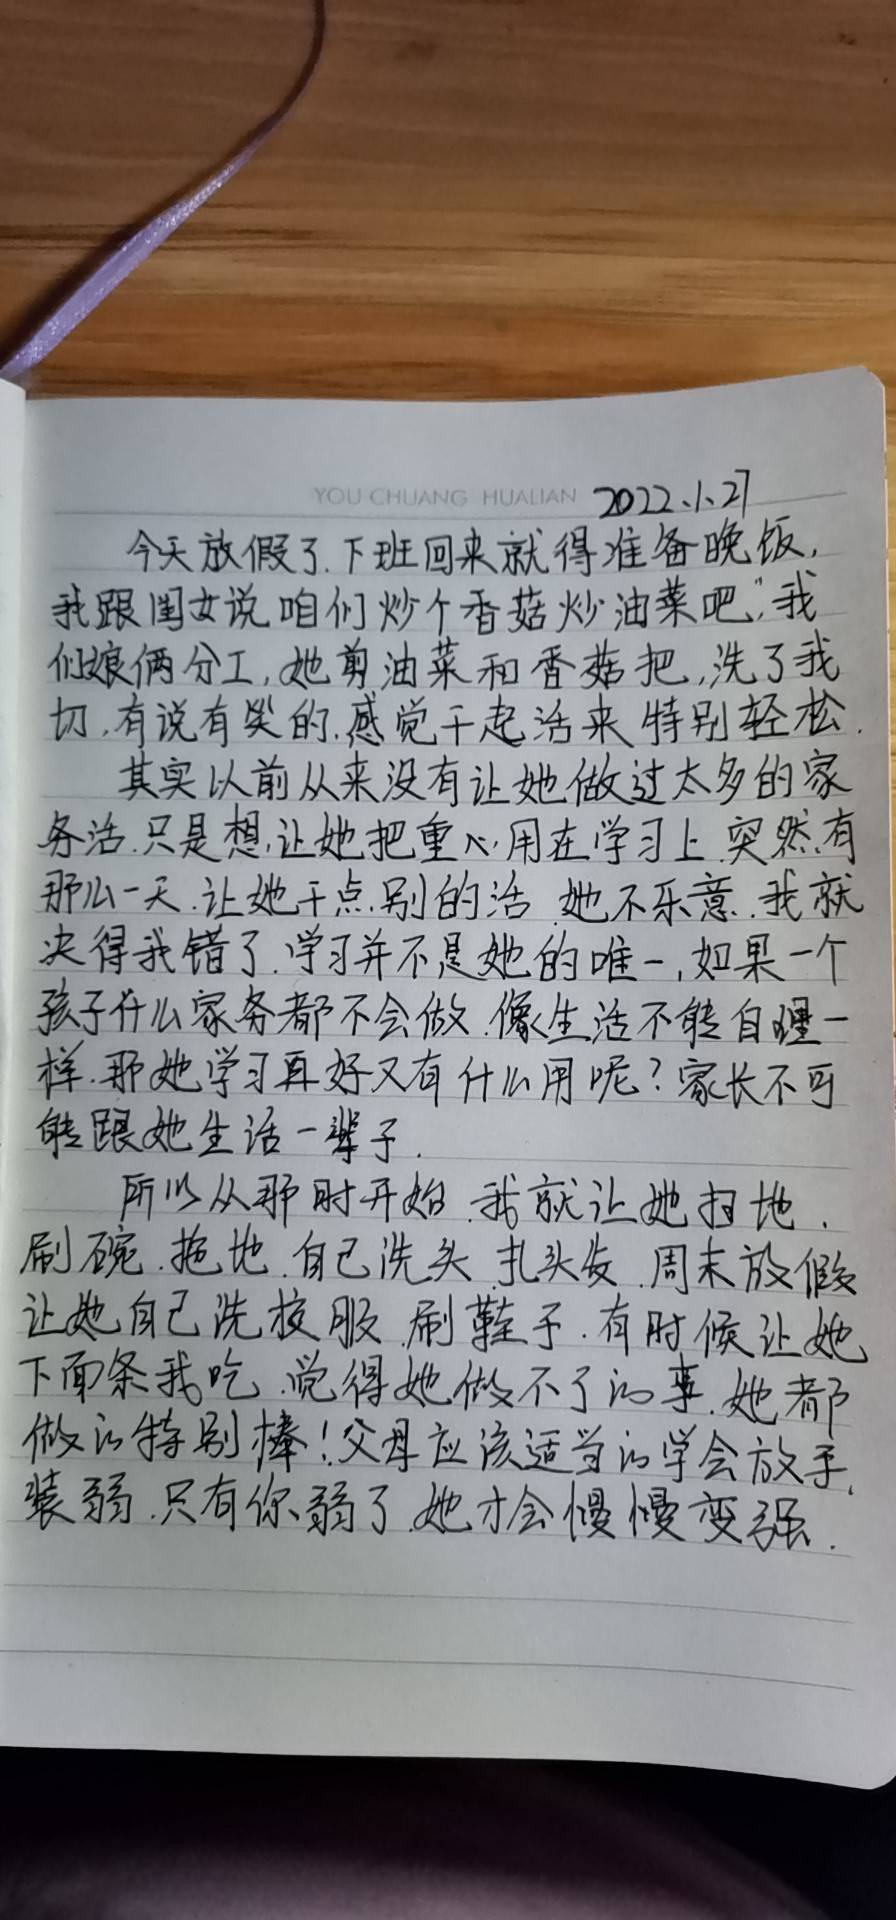 YOU CHUANG HUALIAN 2022.1.27
今天放假了.下班回来就得准备晚饭,
我跟闺女说咱们炒个香菇炒油菜吧",我
们娘俩分工,她剪油菜和香菇把,洗了我
切,有说有笑的,感觉干起活来特别轻松.
其实以前从来没有让她做过太多的家
务活.只是想,让她把重心,用在学习上.突然有
那么一天.让她干点.别的活.她不乐意.我就
决得我错了.学习并不是她的唯一,如果一个
孩子什么家务都不会做.像生活不能自理一
样.那她学习再好又有什么用呢?家长不可
能跟她生活一辈子.
所以从那时开始.我就让她扫地.
刷碗.拖地.自己洗头.扎头发.周末放假
让她自己洗校服.刷鞋子.有时候让她
下面条我吃.觉得她做不了的事.她都
做的特别棒!父母应该适当的学会放手.
装弱.只有你弱了.她才会慢慢变强.